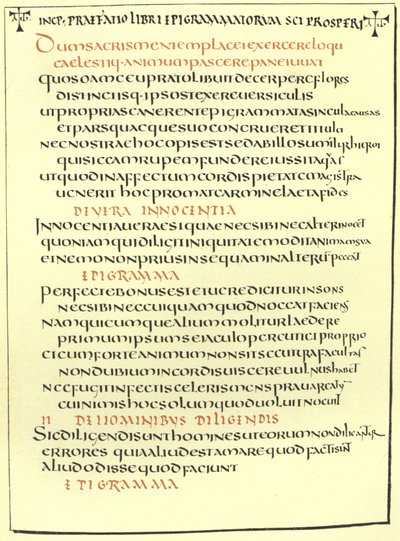 INCP· PRAEFATIO LIBRI EPIGRAMMATORUM SCI PROSPERI
Dum sacris mentem placet exercere loqu
caelestiq· animum pascere pane iuuat
quosdam ceu prato libuit decerpere flores
distinctisq· ipsos texere uersiculis
ut proprias canerent epigrammata singula causas
et pars quaeque suo congrueret titulo
nec nostrae hoc opis est sed ab illo sumitur hic ros
qui siccam rupem fundere iussit aquas
ut quod in affectum cordis pietate magistra
uenerit hoc promat carmine laeta fides
DE UERA INNOCENTIA
Innocentia uera est quae nec sibi nec alteri nocet
quoniam qui diligit iniquitatem odit animam sua
et nemo non prius in se quam in alterum peccat
EPIGRAMMA
Perfecte bonus est et uere dicitur insons
nec sibi nec cuiquam quod noceat faciens
Nam quicumque alium molitur laedere
primum ipsum se iaculo percutiet proprio
et cum forte animum non sit secutura facultas
non dubium in cordis uiscere uulnus habet
nec fugit infectis sceleris mens praua reatum
cui nimis hoc solum quod uoluit nocuit
II DE HOMINIBUS DILIGENDIS
Sic diligendi sunt homines ut eorum non diligantur
errores quia aliud est amare quod facti sunt
aliud odisse quod faciunt
EPIGRAMMA